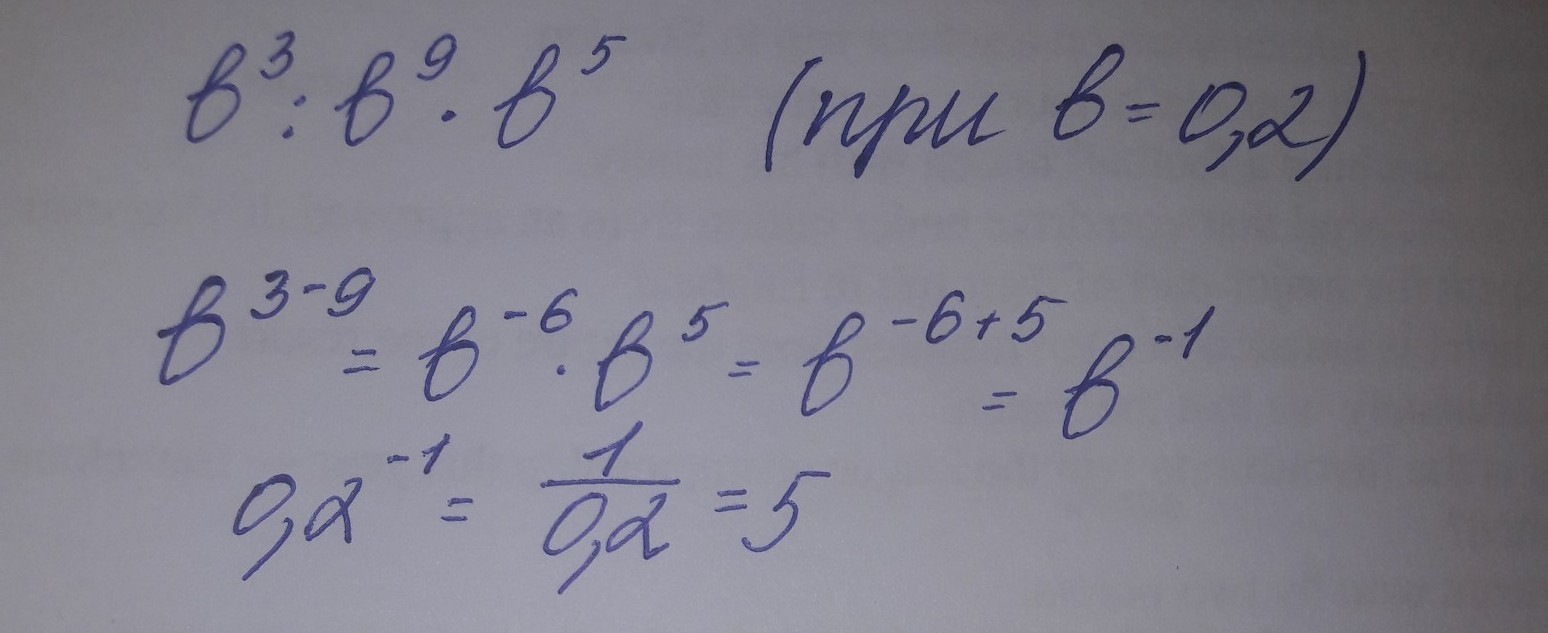 в³ : в⁹ · в⁵ (при в = 0,2)
в³⁻⁹ = в⁻⁶ · в⁵ = в⁻⁶⁺⁵ = в⁻¹
0,2⁻¹ = 1/0,2 = 5